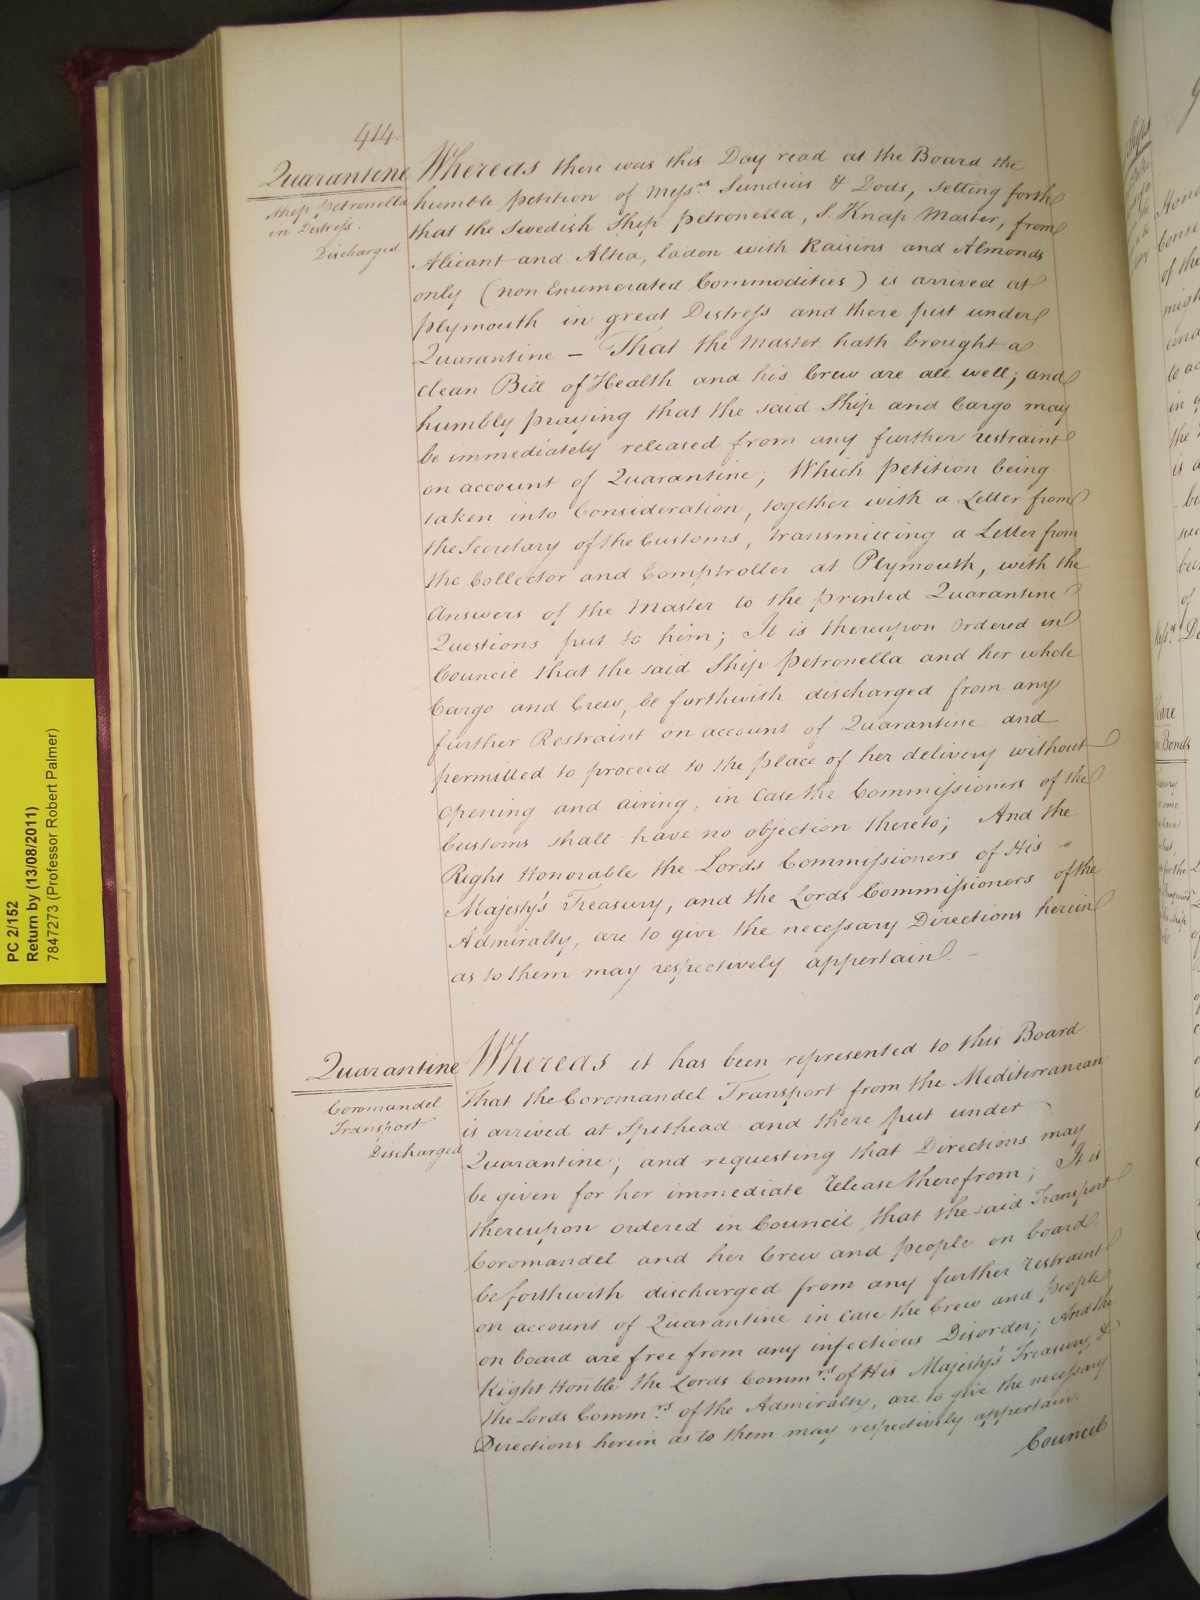 414
Quarantine
Ship Petronella
in Distress.
Discharged
Whereas there was this Day read at the Board the
humble petition of Mess.rs Sundius & Dods, setting forth
that the Swedish Ship Petronella, S. Knap Master, from
Alicant and Altea, laden with Raisins and Almonds
only (non Enumerated Commodities) is arrived at
Plymouth in great Distress and there put under
Quarantine – That the Master hath brought a
clean Bill of Health and his Crew are all well; and
humbly praying that the said Ship and Cargo may
be immediately released from any further restraint
on account of Quarantine; Which petition being
taken into Consideration, together with a Letter from
the Secretary of the Customs, transmitting a Letter from
the Collector and Comptroller at Plymouth, with the
Answers of the Master to the printed Quarantine
Questions put to him; It is thereupon Ordered in
Council that the said Ship Petronella and her whole
Cargo and Crew, be forthwith discharged from any
further Restraint on account of Quarantine and
permitted to proceed to the place of her delivery without
opening and airing, in Case the Commissioners of the
Customs shall have no objection thereto; And the
Right Honorable the Lords Commissioners of His "
Majesty's Treasury, and the Lords Commissioners of the
Admiralty, are to give the necessary Directions herein
as to them may respectively appertain. –
Quarantine
Coromandel
Transport
Discharged
Whereas it has been represented to this Board
That the Coromandel Transport from the Mediterranean
is arrived at Spithead and there put under
Quarantine; and requesting that Directions may
be given for her immediate release therefrom; It is
thereupon ordered in Council, that the said Transport
Coromandel and her Crew and people on board
be forthwith discharged from any further restraint
on account of Quarantine in case the Crew and people
on board are free from any infectious Disorder; And the
Right Honble the Lords Commrs. of His Majesty's Treasury, &
the Lords Commrs. of the Admiralty, are to give the necessary
Directions herein as to them may respectively appertain.
Council
PC 2/152
Return by (13/08/2011)
7847273 (Professor Robert Palmer)